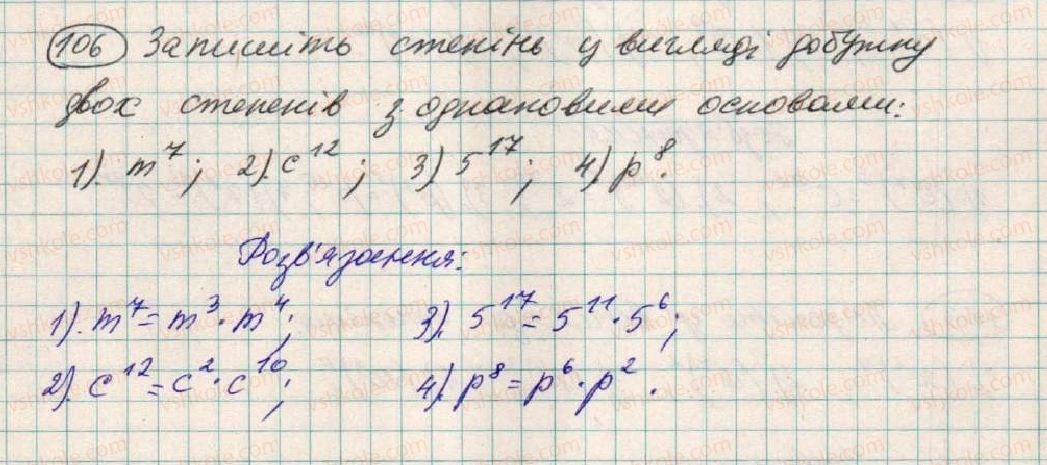 106 Запишіть степінь у вигляді добутку
двох степенів з однаковими основами:
1). m^7; 2). c^12; 3) 5^17; 4) p^8.
Розв'язання:
1). m^7 = m^3 · m^4; 3). 5^17 = 5^11 · 5^6;
2). c^12 = c^2 · c^10; 4). p^8 = p^6 · p^2.